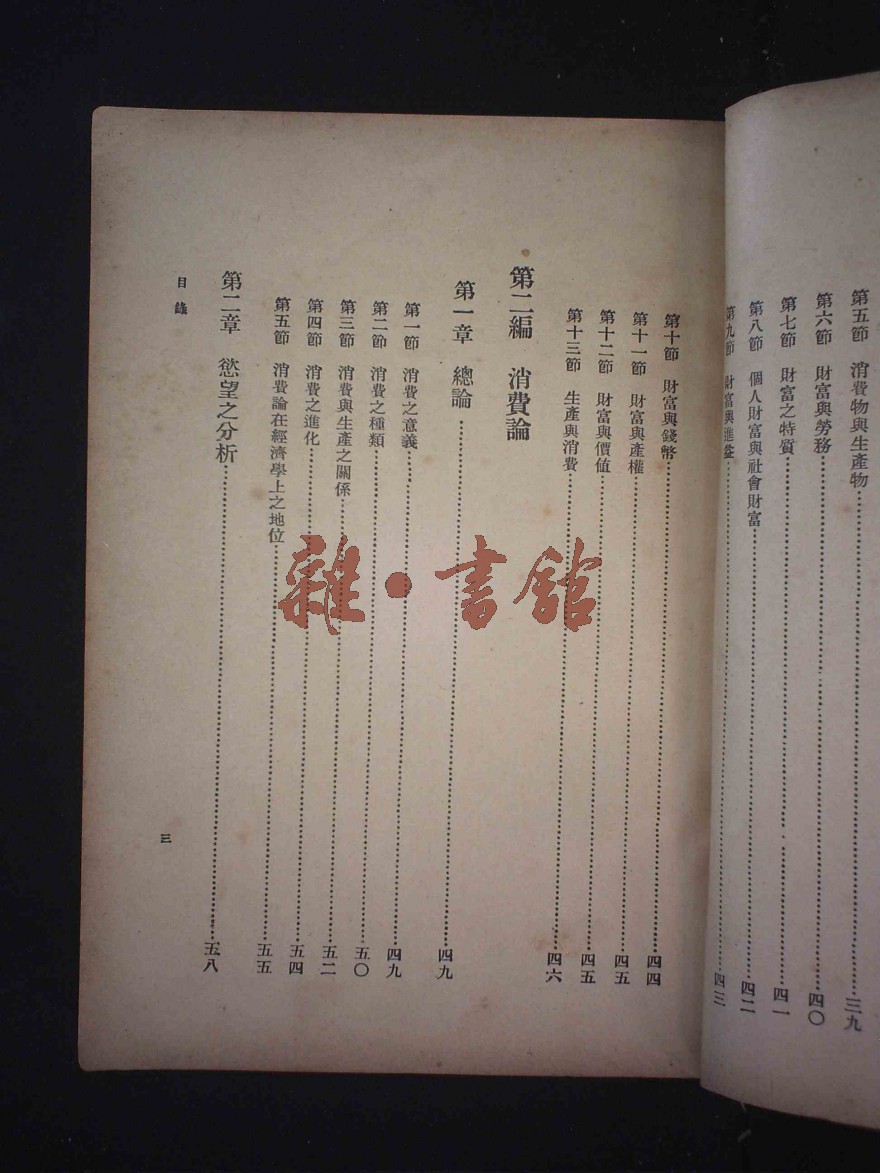 第五節　消費物與生產物……三九
第六節　財富與勞務……四〇
第七節　財富之特質……四一
第八節　個人財富與社會財富……四二
第九節　財富與進益……四三
第十節　財富與錢幣……四四
第十一節　財富與產權……四五
第十二節　財富與價值……四五
第十三節　生產與消費……四六
第二編　消費論
第一章　總論……四九
第一節　消費之意義……四九
第二節　消費之種類……五〇
第三節　消費與生產之關係……五二
第四節　消費之進化……五四
第五節　消費論在經濟學上之地位……五五
第二章　慾望之分析……五八
目錄
三
雜·書館